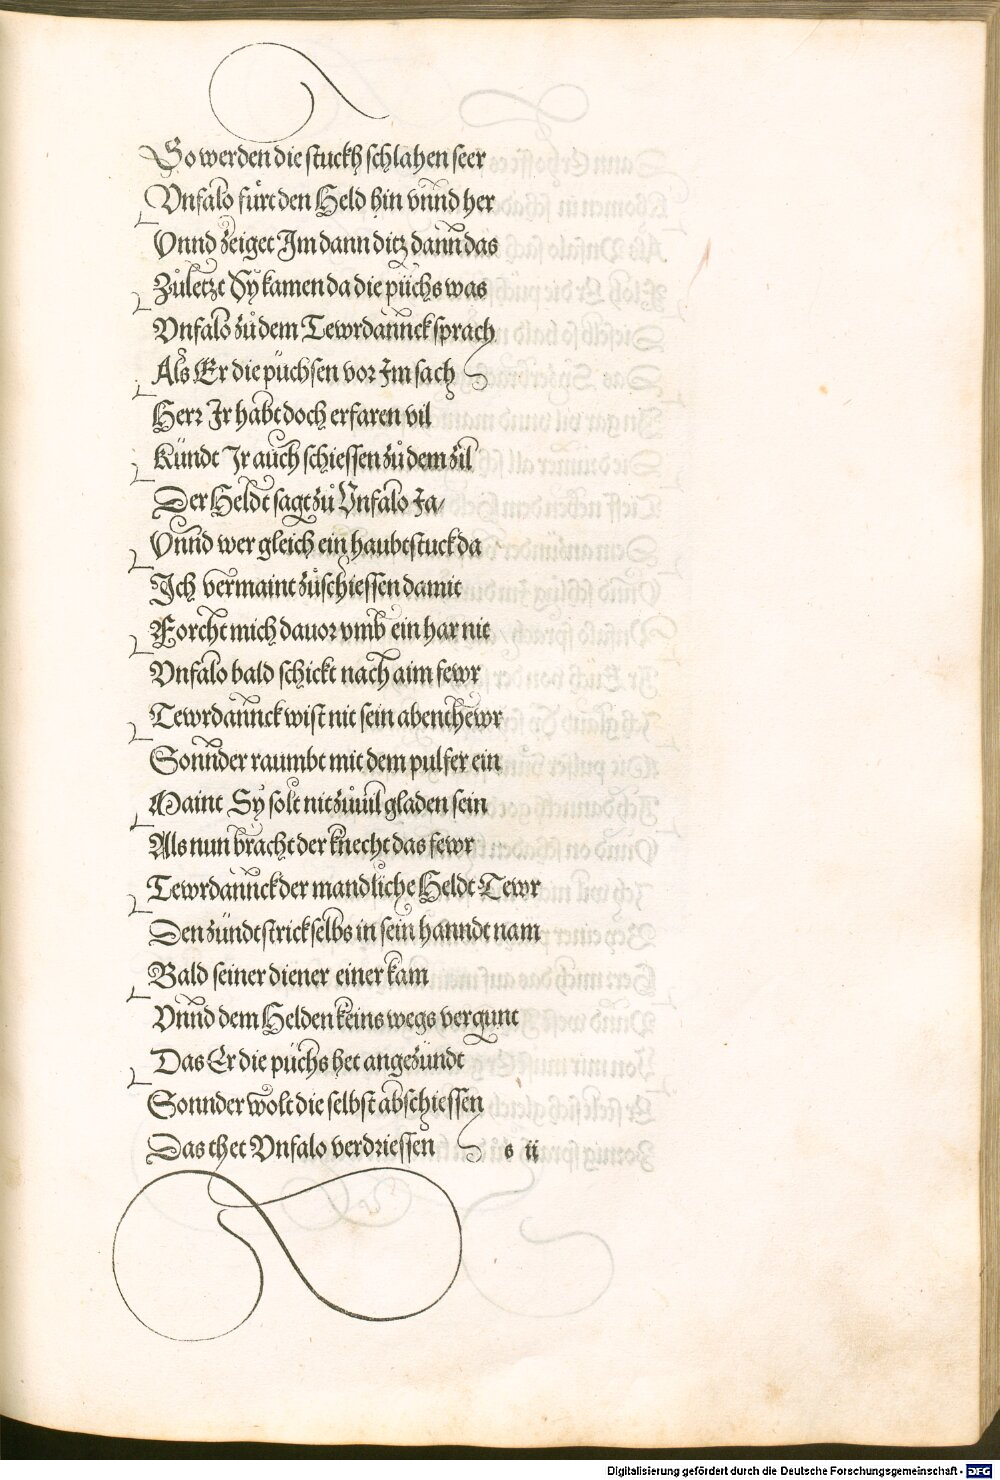 So werden die stuckh schlahen seer
Vnfalo fůrt den Held hin vnnd her
Vnnd zeiget Im dann ditz dann das
Zůletzt Sy kamen da die püchs was
Vnfalo zů dem Tewrdannck sprach
Als Er die püchsen vor Im sach
Herr Ir habt doch erfaren vil
Kündt Ir auch schiessen zů dem zil
Der Heldt sagt zů Vnfalo Ja/
Vnnd wer gleich ein haubtstuck da
Ich vermaint zůschiessen damit
Forcht mich dauor vmb ein har nit
Vnfalo bald schickt nach aim fewr
Tewrdannck wist nit sein abenthewr
Sonnder raumbt mit dem pulfer ein
Maint Sy solt nit zůuil gladen sein
Als nun bracht der knecht das fewr
Tewrdannck der mandliche Heldt Tewr
Den zündtstrick selbs in sein hanndt nam
Bald seiner diener einer kam
Vnnd dem Helden keins wegs vergunt
Das Er die püchs het angezündt
Sonnder wolt die selbst abschiessen
Das thet Vnfalo verdriessen s ii
Digitalisierung gefördert durch die Deutsche Forschungsgemeinschaft - DFG